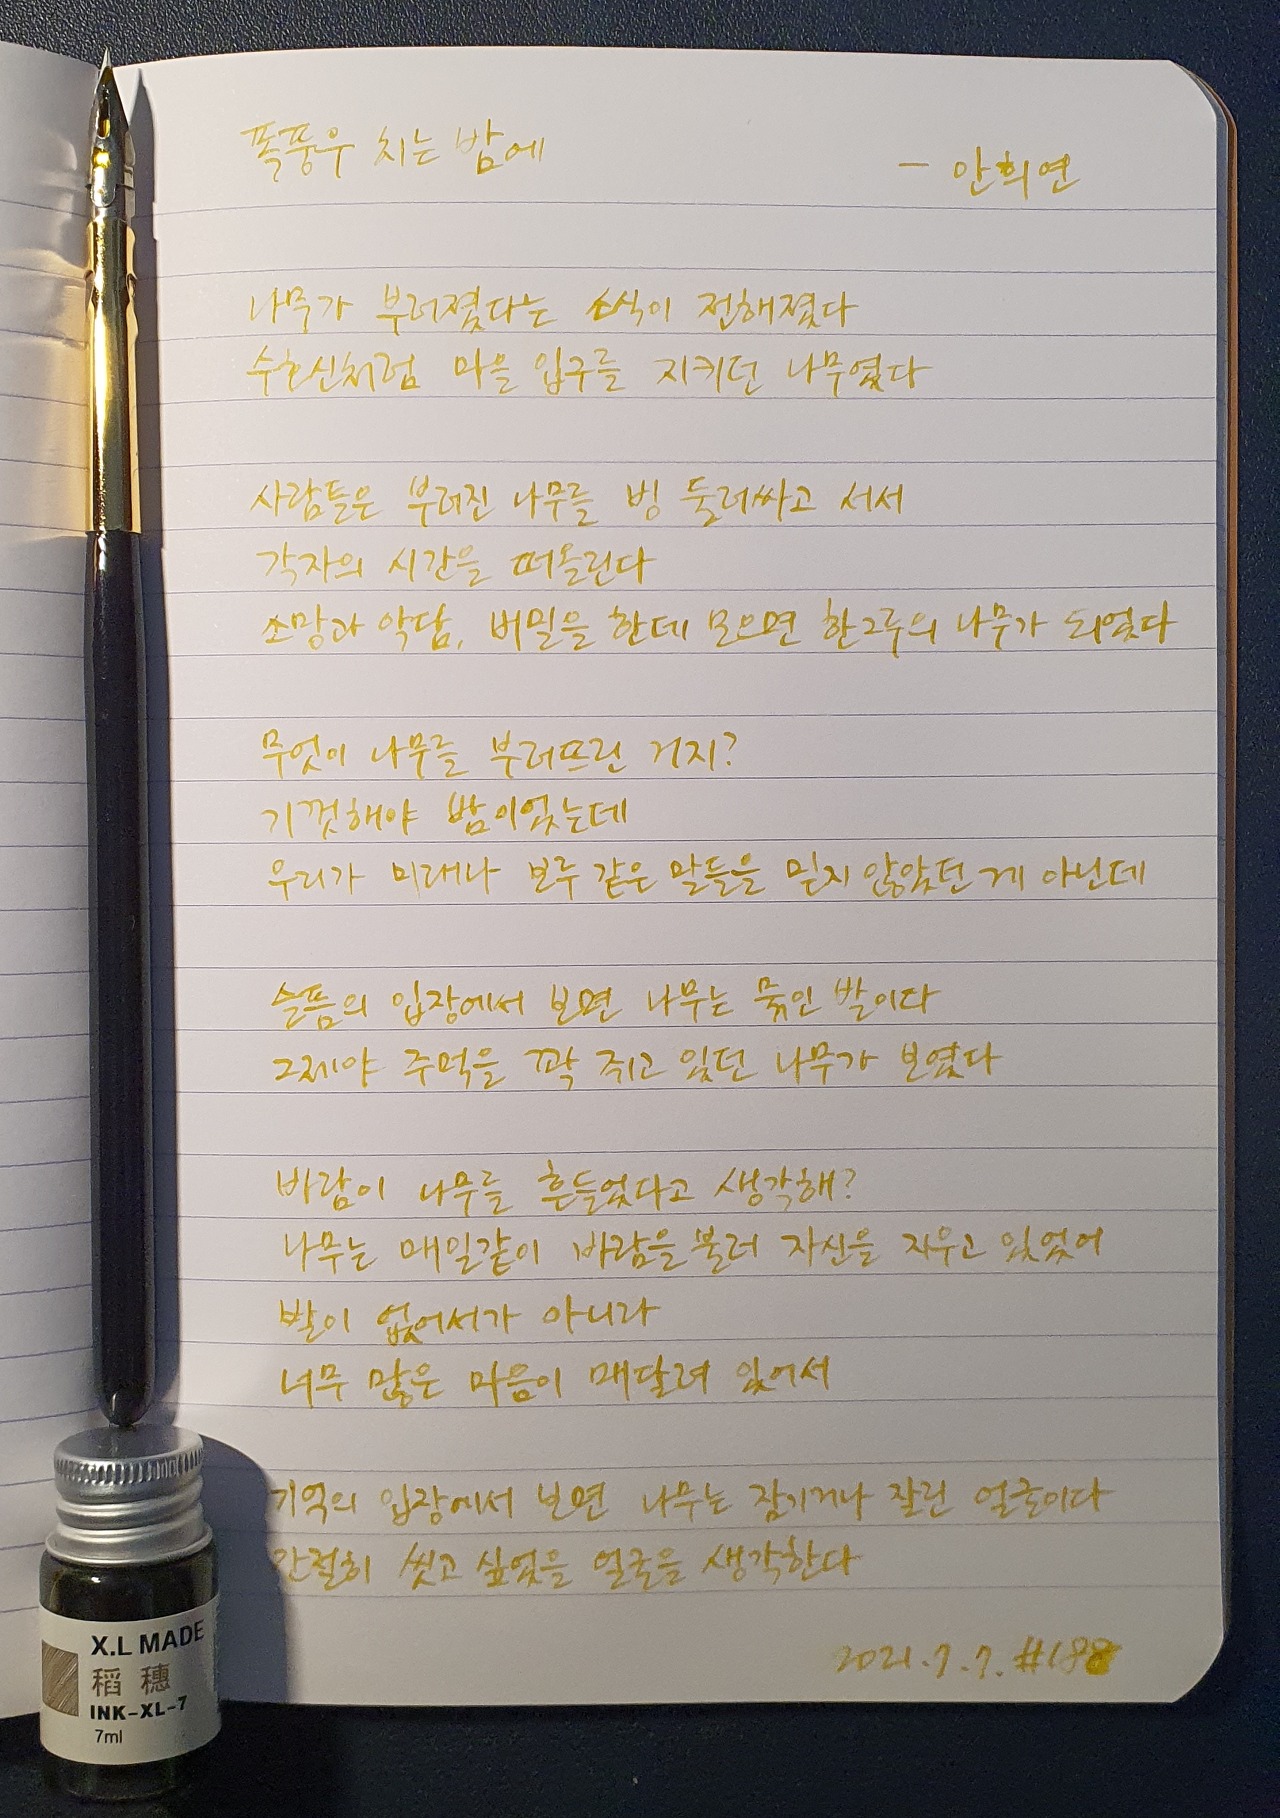 폭풍우 치는 밤에
- 안희연
나무가 부러졌다는 소식이 전해졌다
수호신처럼 마을 입구를 지키던 나무였다
사람들은 부러진 나무를 빙 둘러싸고 서서
각자의 시간을 떠올린다
소망과 악담, 비밀을 한데 모으면 한그루의 나무가 되었다
무엇이 나무를 부러뜨린 거지?
기껏해야 밤이었는데
우리가 미래나 보루 같은 말들을 믿지 않았던 게 아닌데
슬픔의 입장에서 보면 나무는 묶인 발이다
그제야 주먹을 꽉 쥐고 있던 나무가 보였다
바람이 나무를 흔들었다고 생각해?
나무는 매일같이 바람을 불러 자신을 지우고 있었어
발이 없어서가 아니라
너무 많은 마음이 매달려 있어서
기억의 입장에서 보면 나무는 잠기거나 잘린 얼굴이다
간절히 씻고 싶었을 얼굴을 생각한다
2021.7.7. #188
X.L MADE
稻穗
INK-XL-7
7ml